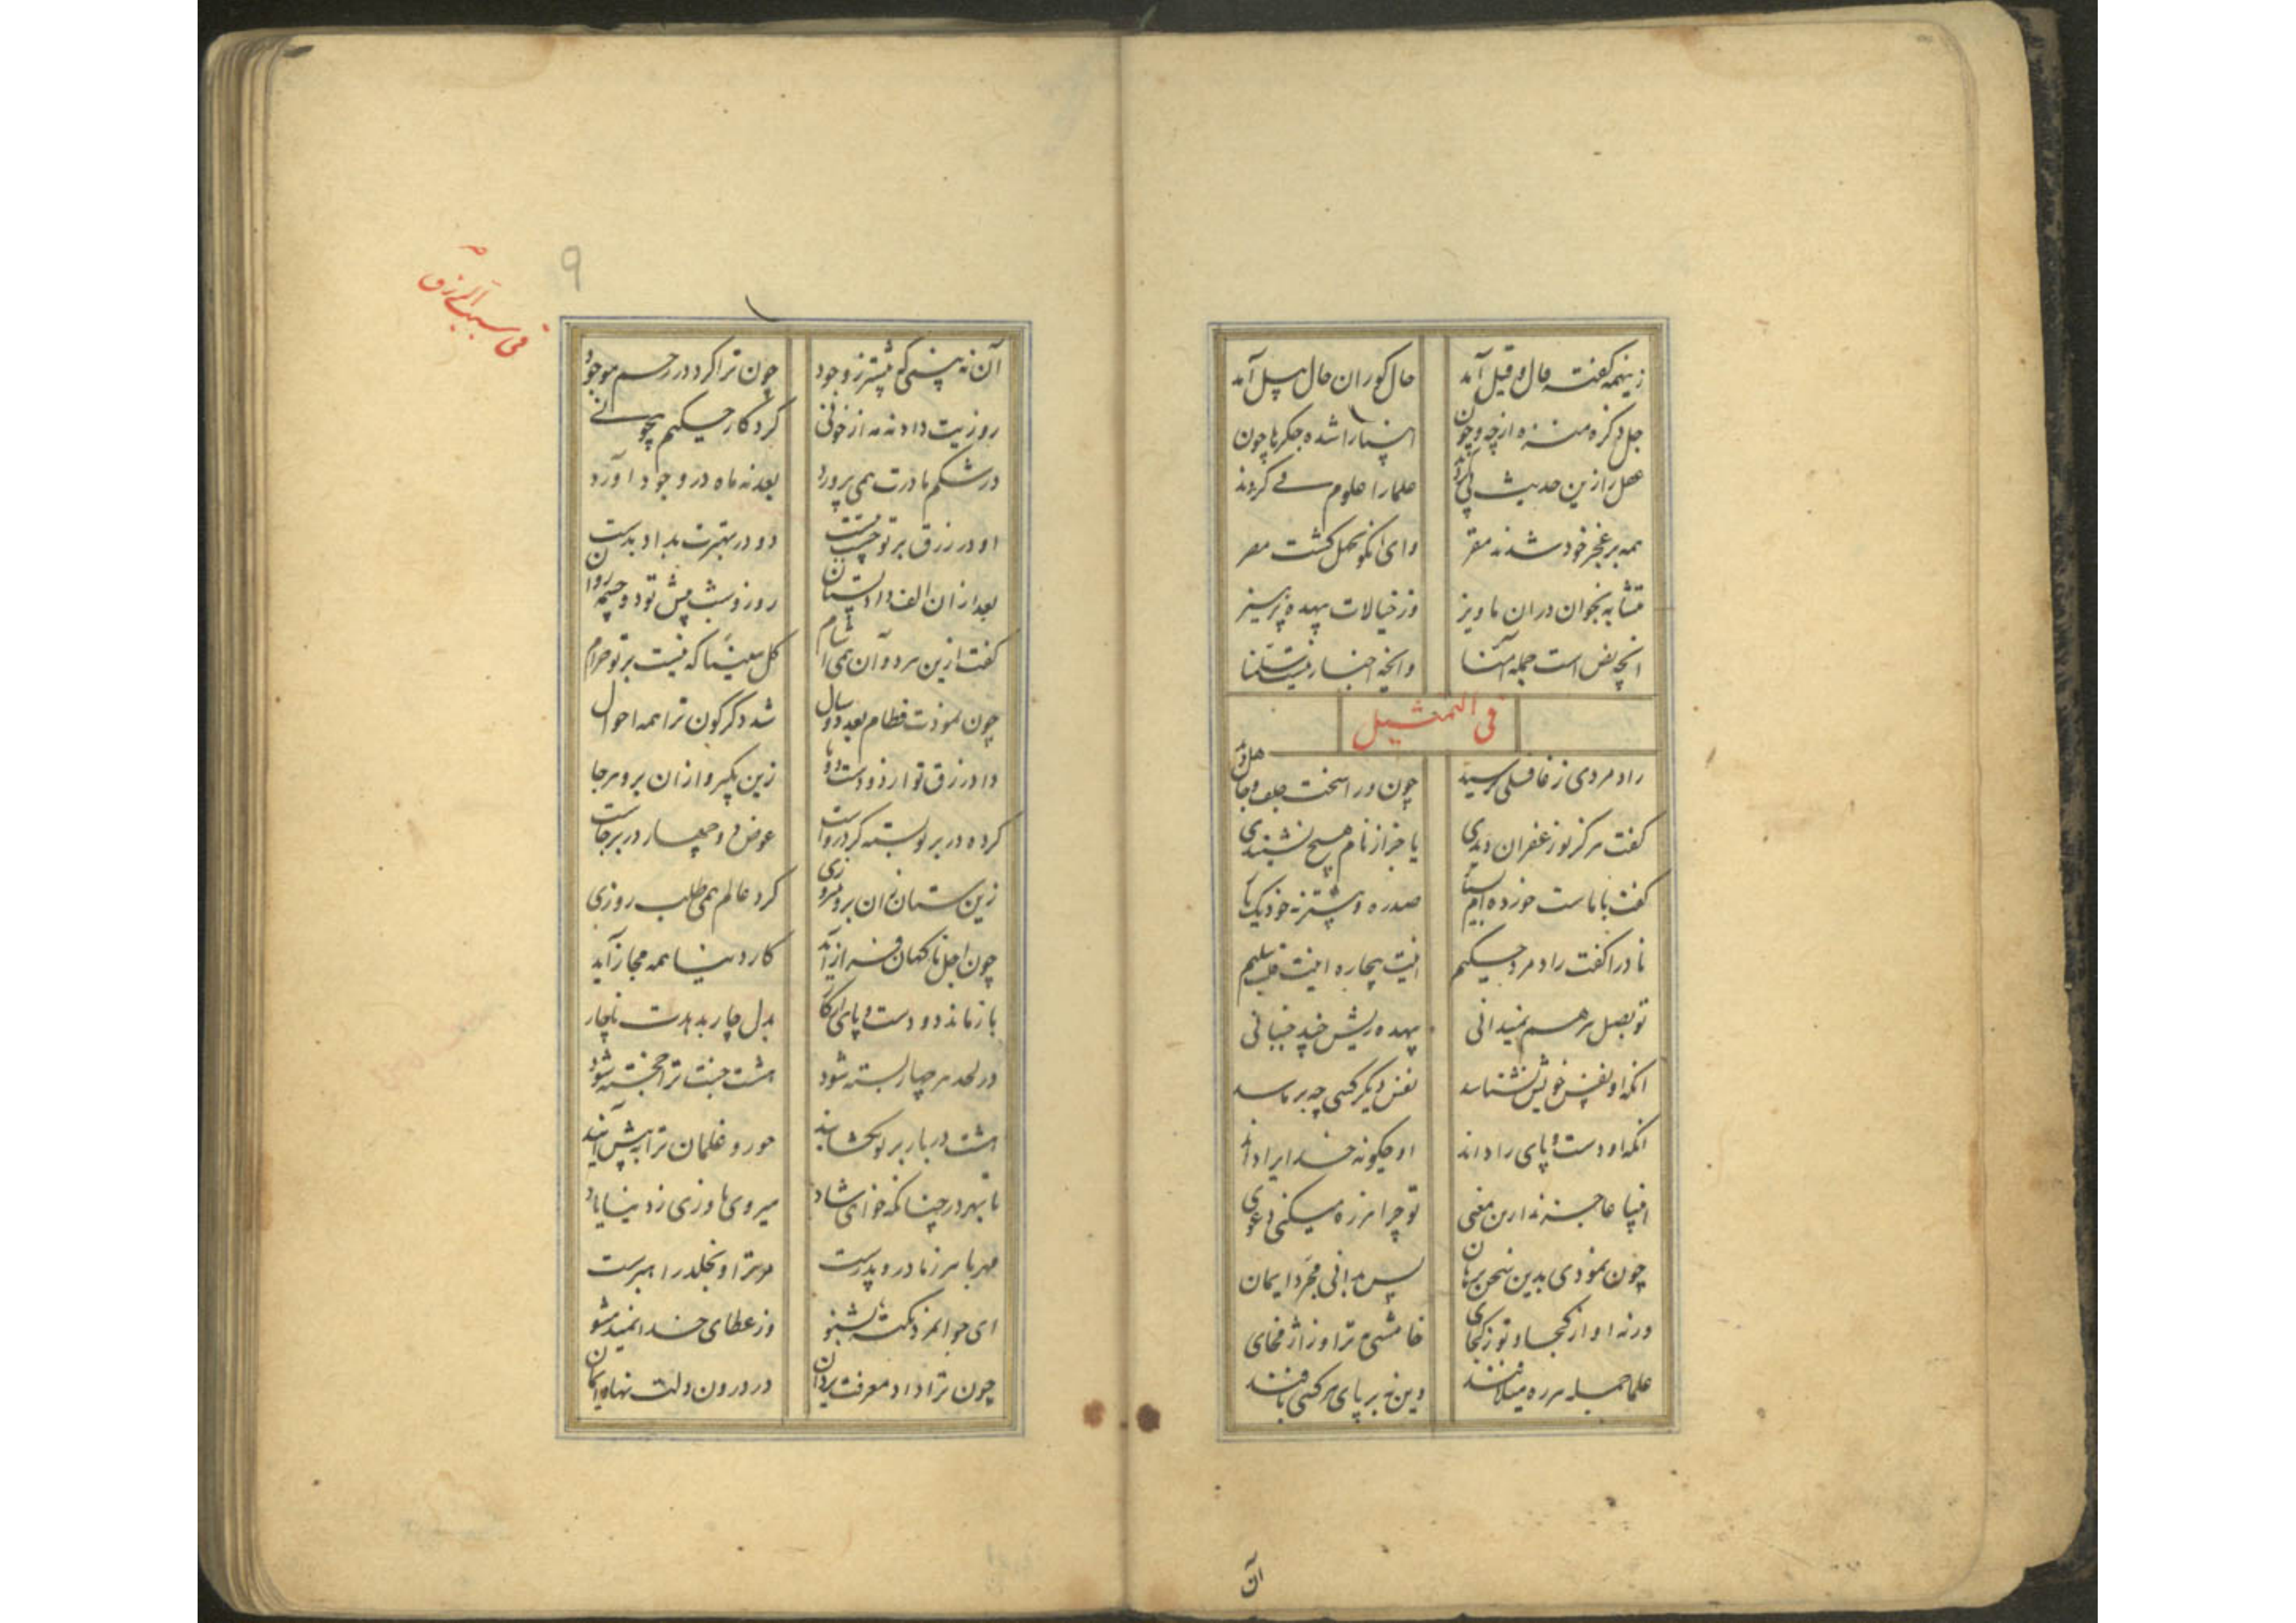 زینهمه گفته قال و قیل آمد
حال کوران حال پیل آمد
جل ذکره منزه از چه و چون
انبیا را شده جگرها چون
عقل را زین حدیث پی کردند
علما را علوم طی کردند
همه بر عجز خود شدند مقر
وای انکو بجهل گشت مصر
متشابه بخوان در ان ماویز
وز خیالات بیهده پرهیز
انچه نص است جمله آمنا
وانچه اخبار نیز سلمنا
فی التمثیل
راد مردی ز غافلی پرسید
چون ورا سخت جلف و جاهل دید
گفت هرگز تو زعفران دیدی
یا جز از نام هیچ نشنیدی
گفت با ماست خورده ام بسیار
صد ره و بیشتر نه خود یکبار
تا ورا گفت راد مرد حکیم
اینت بیچاره اینت قلب سلیم
تو بصل هم نمیدانی
بیهده ریش چند جنبانی
انکه او نفس خویش نشناسد
نفس دیگر کسی چه برماسد
انکه او دست و پای را داند
او چگونه خدایرا داند
انبیا عاجزند ازین معنی
تو چرا هرزه میکنی دعوی
چون نمودی بدین سخن برهان
پس بدانی مجرد ایمان
ورنه او از کجا و تو ز کجای
خامشی به ترا و ژاژ مخای
علما جمله هرزه میلافند
دین نه بر پای هر کسی بافند
آن
۹
فی سبب الرزق
آن نه بینی که پیشتر ز وجود
چون ترا کرد در رحم موجود
روزیت داد نه مه از خونی
کردگار حکیم بیچونی
در شکم مادرت همی پرورد
بعد نه ماه در وجود آورد
او در رزق بر تو چست ببست
دو در بهترت بداد بدست
بعد ازان الف داد پستان
روز و شب پیش تو دو چشمه روان
گفت ازین هر دو آن همی آشام
کل هنیئا که نیست بر تو حرام
چون نمودت فطام بعد دو سال
شد دگرگون ترا همه احوال
داد رزق تو از دو دست و دو پا
زین بگیر و ازان برو هرجا
گرده در بر تو بسته کرد رواست
عوض دو چهار در برجاست
زین ستان زان برو بپیروزی
گرد عالم همی طلب روزی
چون اجل ناگهان فراز آید
کار دنیا همه مجاز آید
باز ماند دو دست و پای از کار
بدل چار بدهدت ناچار
در لحد هر چهار بسته شود
هشت جنت ترا خجسته شود
هشت در باز بر تو بگشایند
حور و غلمان ترا به پیش آیند
تا بهر در چنانکه خواهی شاد
میروی ناوری ز دنیا یاد
مهربانتر ز مادر و پدرست
مر ترا او بخلد راهبرست
ای جوانمرد نکته بشنو
وز عطای خدا نمید مشو
چون ترا داد معرفت یزدان
در درون دلت نهاد ایمان